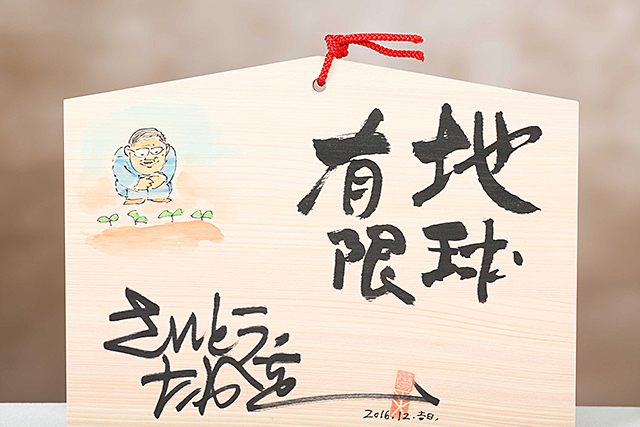 地球
有限
さいとう・
たかを
2016.12.吉日.